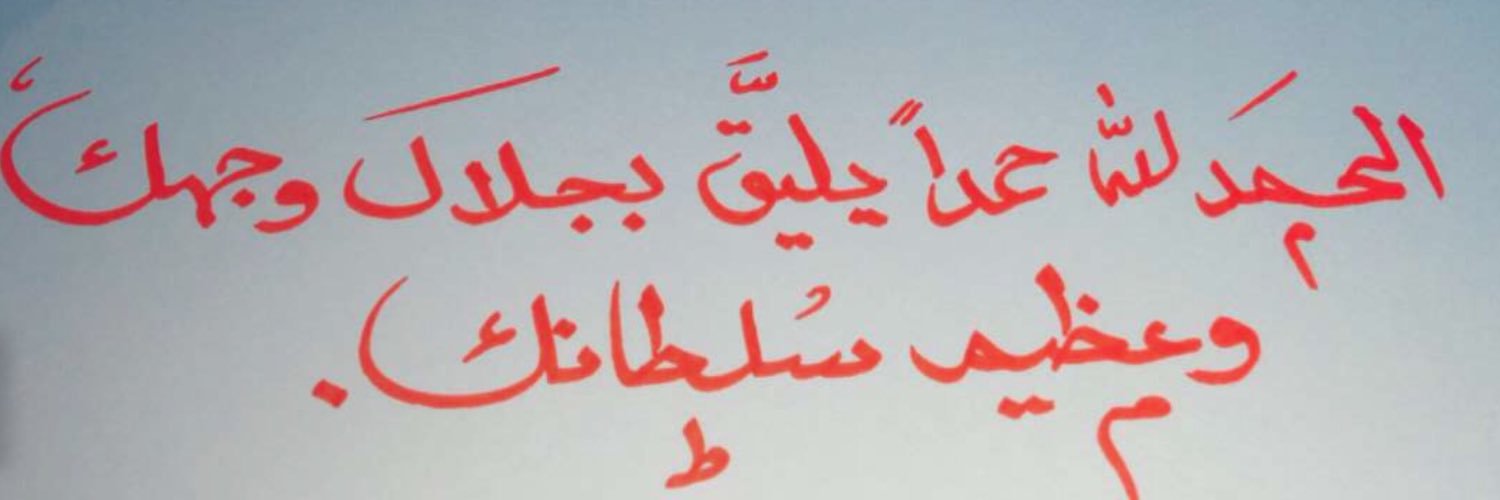 الحمد لله حمداً يليق بجلال وجهك،
وعظيم سلطانك.